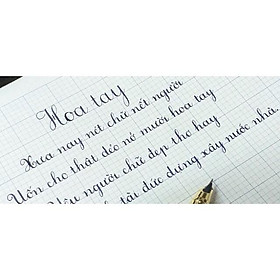 Hoa tay
Xưa nay nét chữ nét người
Uốn cho thật dẻo nở mười hoa tay
Yêu người chữ đẹp thơ hay
tài đức dựng xây nước nhà.